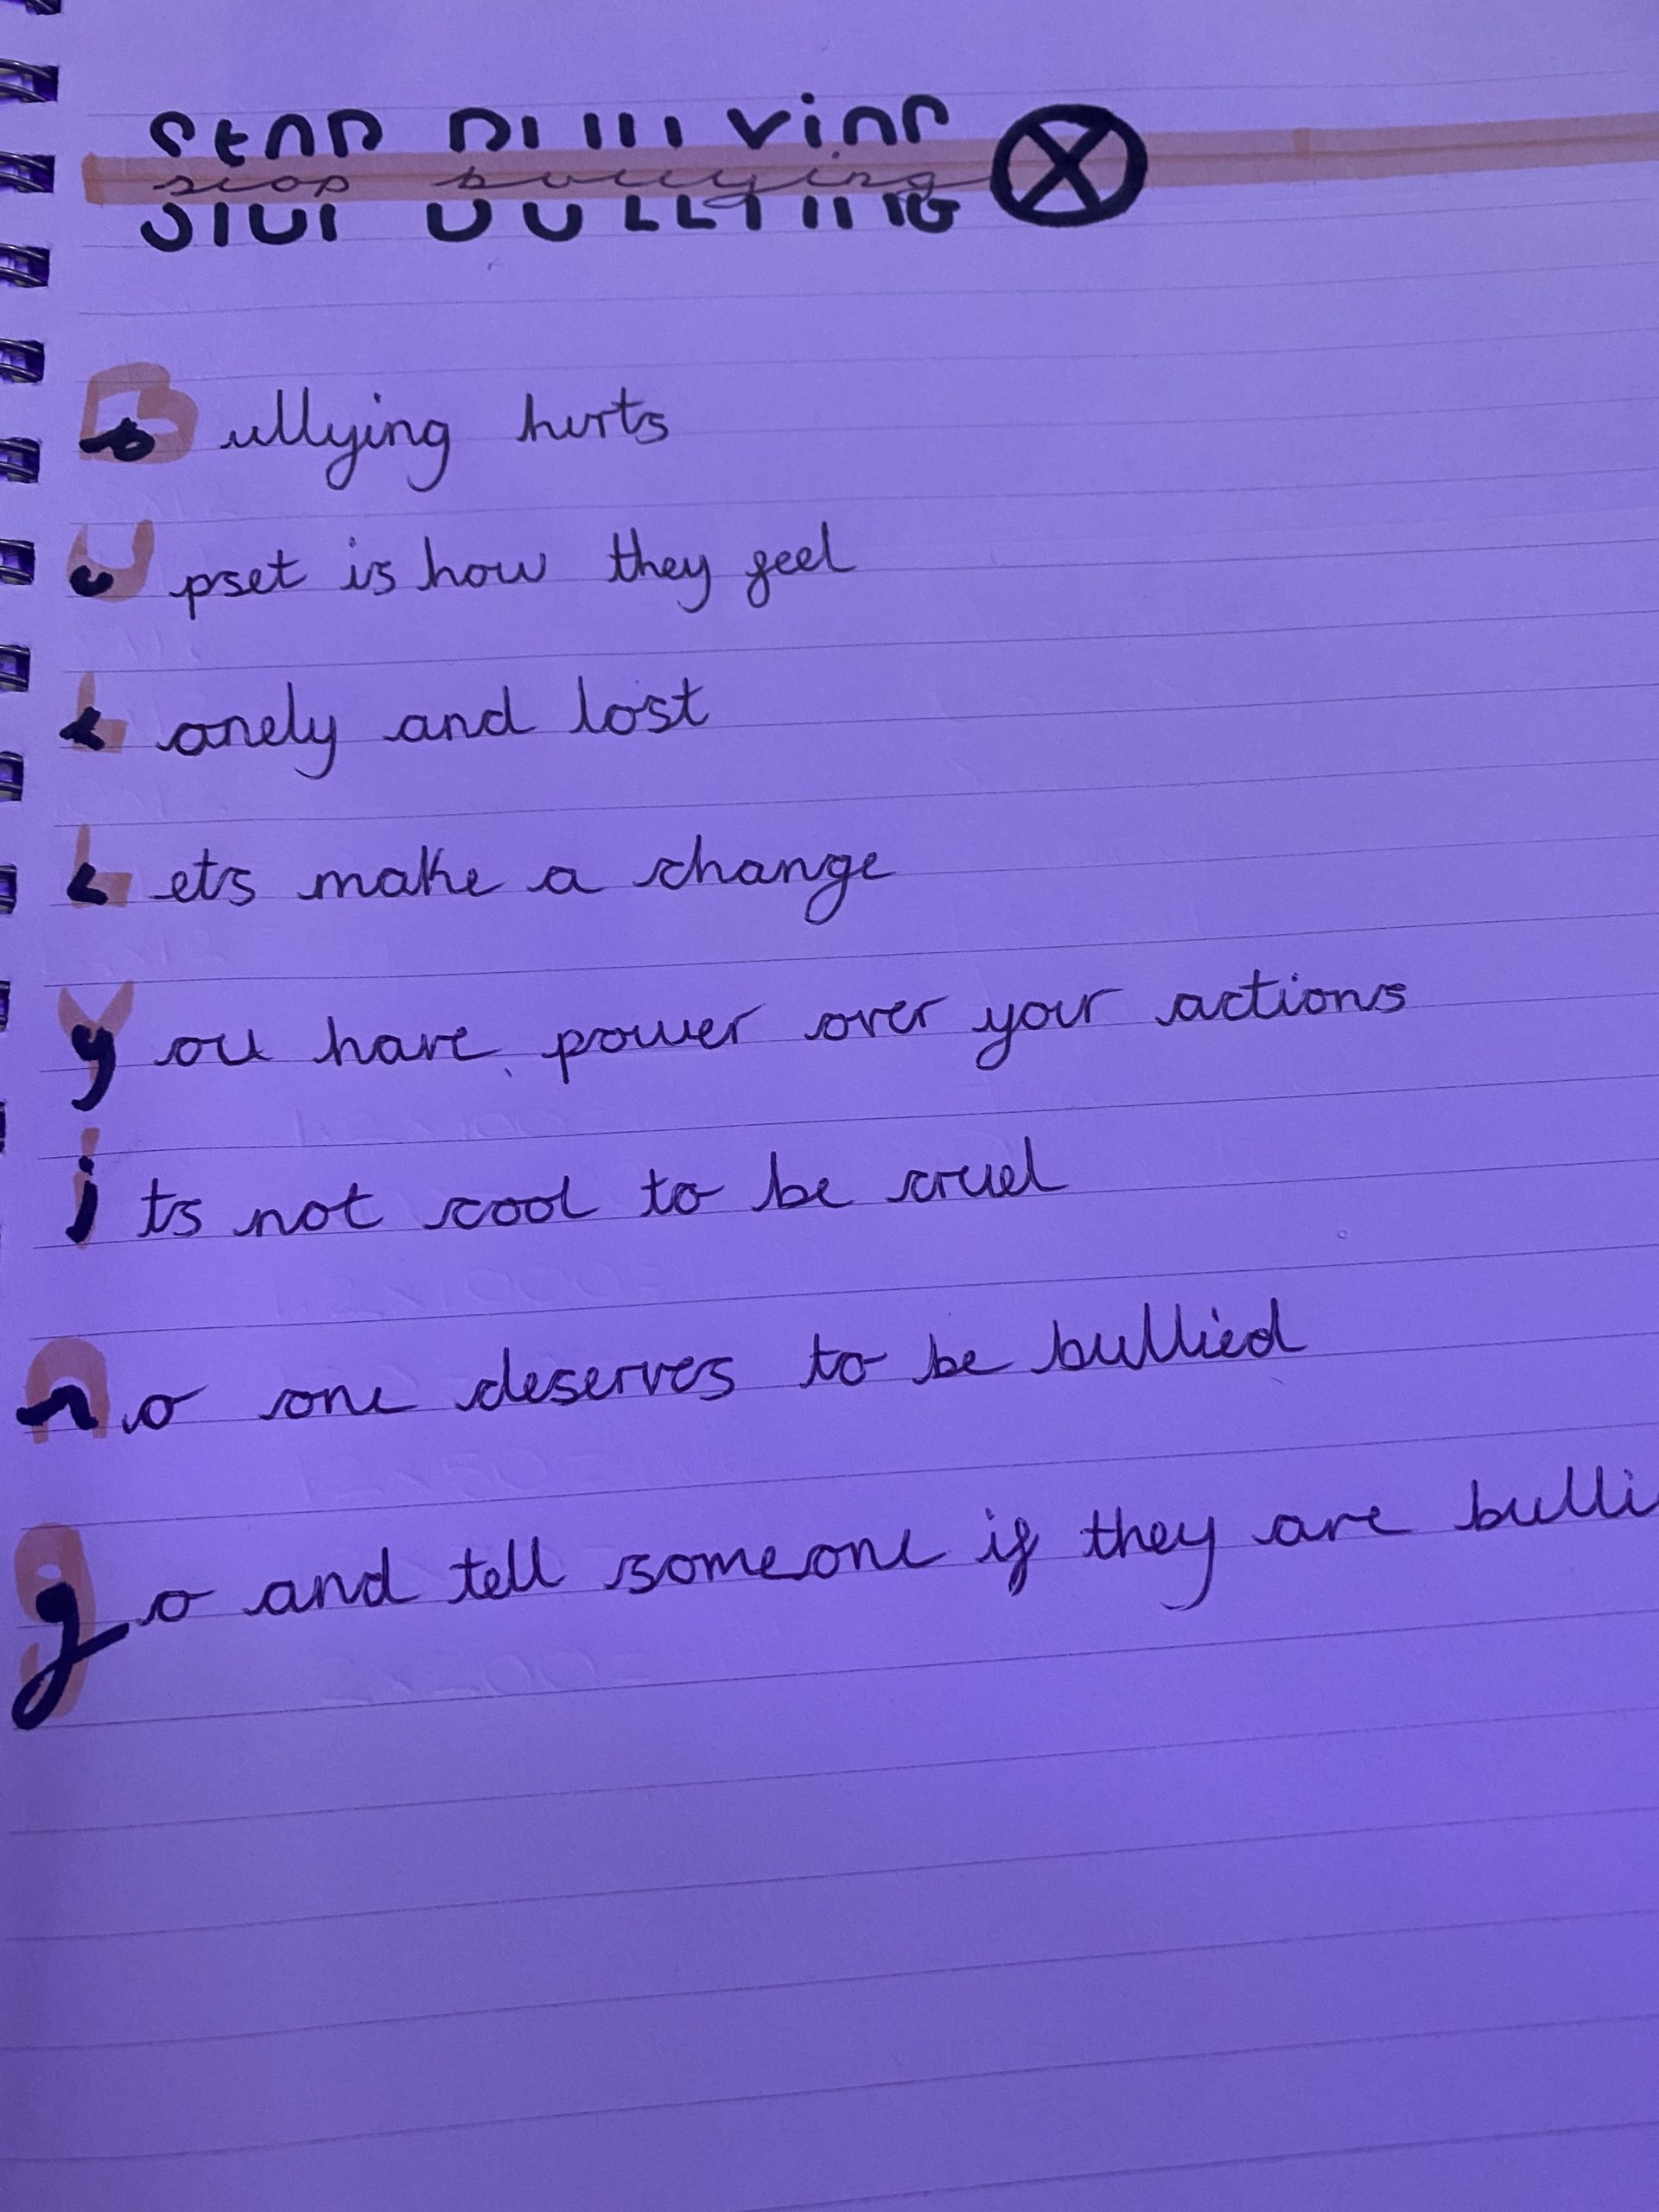 stop bullying
Bullying hurts
Upset is how they feel
Lonely and lost
Lets make a change
You have power over your actions
its not cool to be cruel
no one deserves to be bullied
go and tell someone if they are bulli